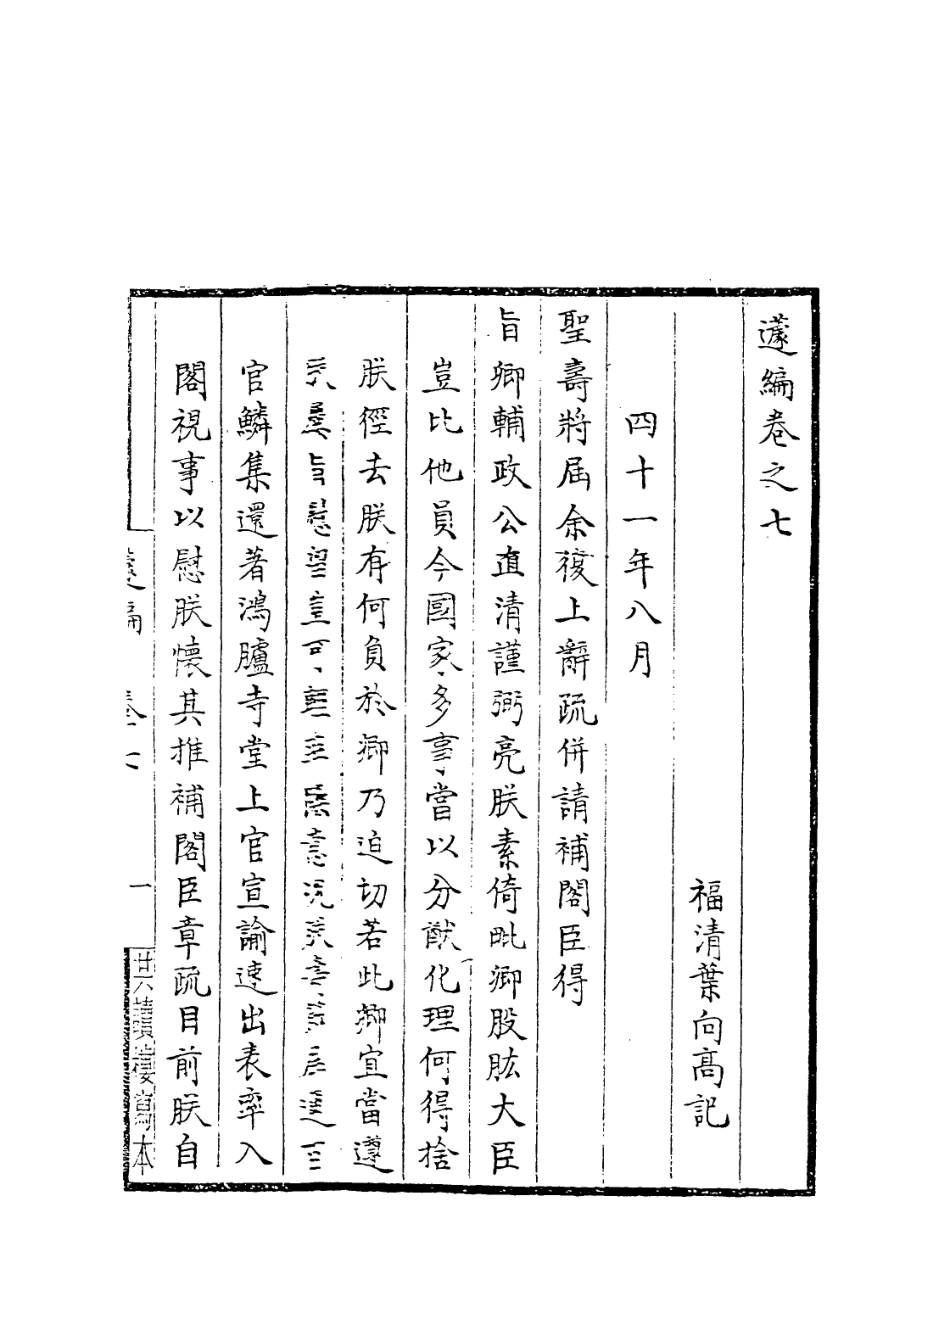 蘧編卷之七
福清葉向高記
四十一年八月
聖壽將屆余復上辭疏併請補閣臣得
旨卿輔政公直清謹弼亮朕素倚毗卿股肱大臣
豈比他員今國家多事當以分猷化理何得捨
朕徑去朕有何負於卿乃迫切若此卿宜當遵
旨慰豈可意況
官鱗集還著鴻臚寺堂上官宣諭速出表率入
閣視事以慰朕懷其推補閣臣章疏目前朕自
蘧編 卷七 一
樓寫本